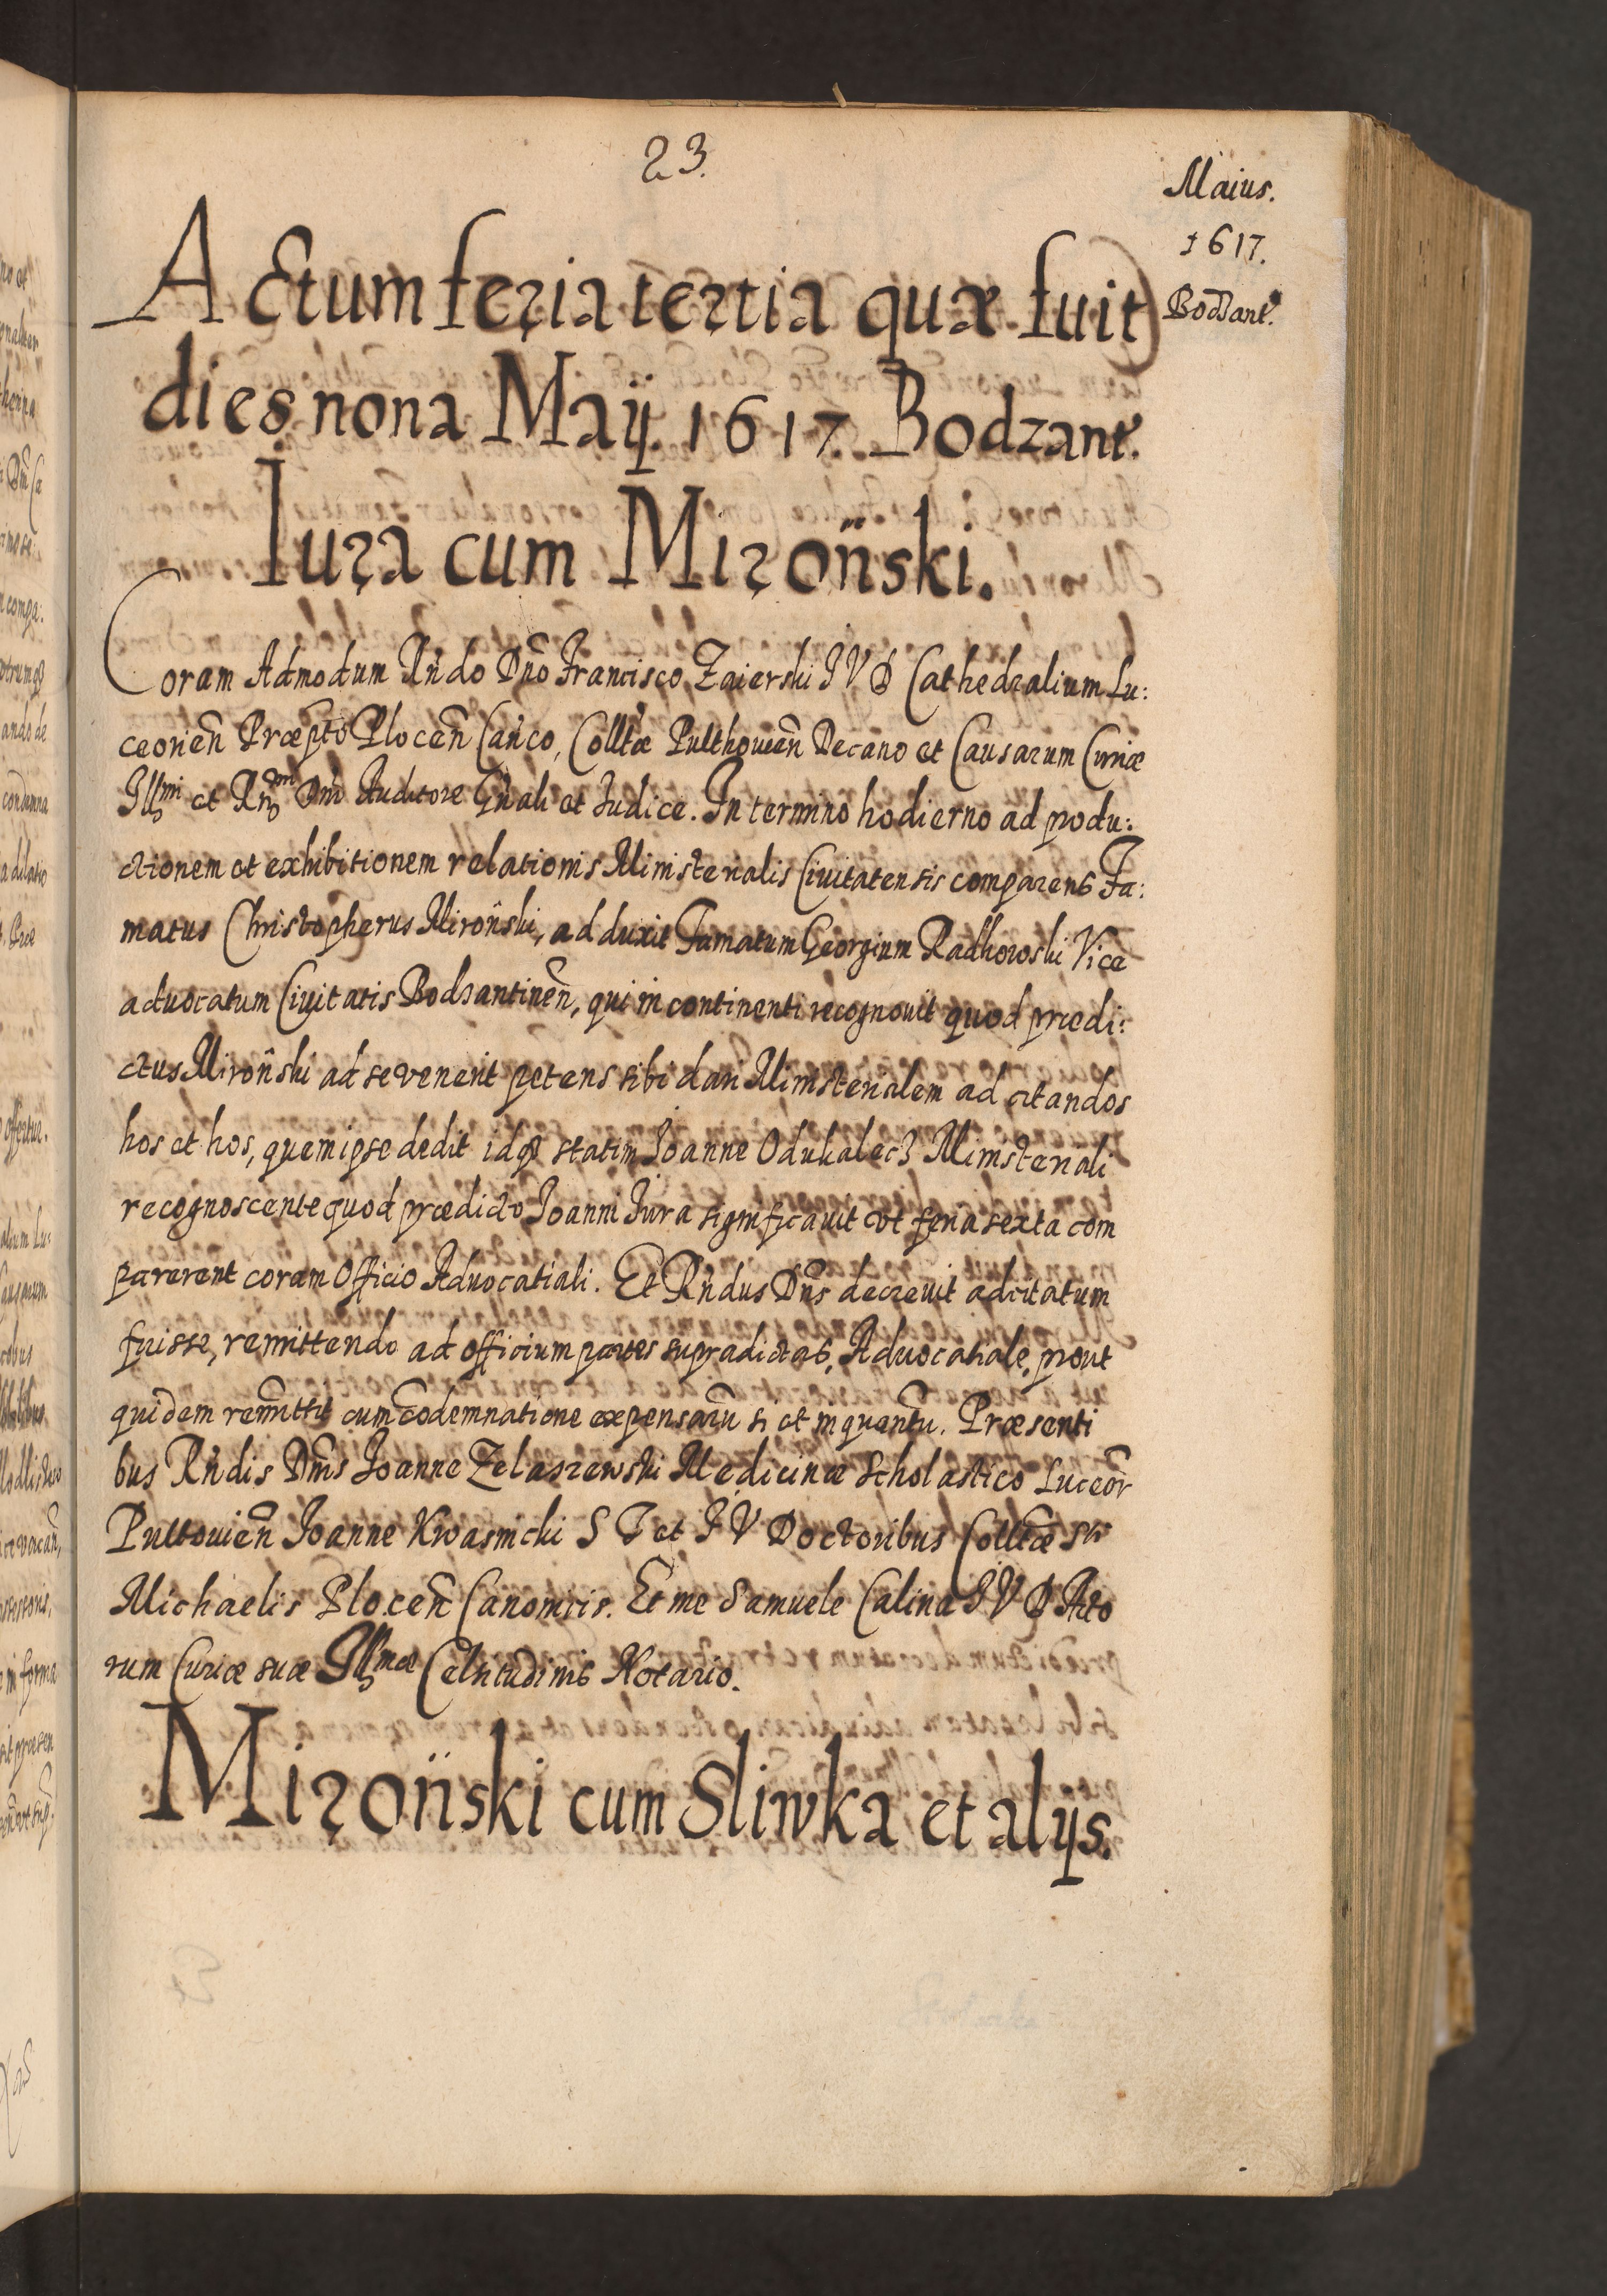 23.
Maius.
1617.
Bodzant.
Actum feria tertia quæ fuit
dies nona Maij. 1617. Bodzant.
Iura cum Miroński.
Coram Admodum Rńdo Dńo Francisco Zaierski I V D Cathedralium Lu:
ceorień Præpto Ploceń Cańco, Colltæ Pulthouień Decano et Causarum Curiæ
Illmi et Rmi Dńi Auditore Gńali et Iudice. In termino hodierno ad produ:
ctionem et exhibitionem relationis Ministerialis Ciuitatensis comparens Fa:
matus Christopherus Miroński, adduxit Famatum Georgium Radkowski Vice
aduocatum Ciuitatis Bodzantineń, qui in continenti recognouit quod prædi:
ctus Miroński ad se venerit petens sibi dari Ministerialem ad citandos
hos et hos, quem ipse dedit idq3 statim Joanne Odukalecz Ministeriali
recognoscente quod prædicto Joanni Jura significauit vt feria sexta com
parerent coram Officio Aduocatiali. Et Rńdus Dńs decreuit adcitatum
fuisse, remittendo ad officium partes supradictas, Aduocatiale, prout
quidem remittit cum codemnatione expensarū si et in quantū. Præsenti
bus Rńdis Dńis Joanne Zelaszewski Medicinæ Scholastico Luceoŕ
Pultouień Joanne Kwasnicki S T et I V Doctoribus Colltæ Sti
Michaelis Ploceń Canonicis. Et me Samuele Calina I V D Acto
rum Curiæ suæ Illmæ Celsitudinis Notario.
Miroński cum Sliwka et alijs.